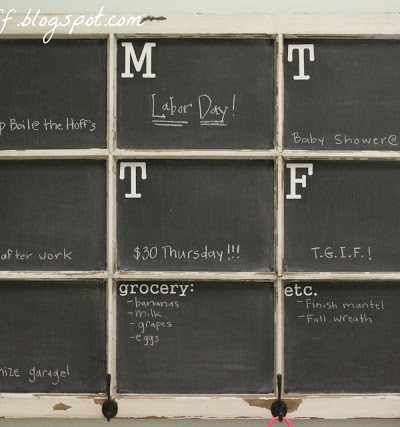 ff.blogspot.com
M
T
Labor Day!
p Boil@ the Hoff's
Baby Shower@
T
F
after work
$30 Thursday!!!
T.G.I.F.!
grocery:
- bananas
- milk
- grapes
- eggs
etc.
- Finish mantel
- Fall wreath
nize garage!